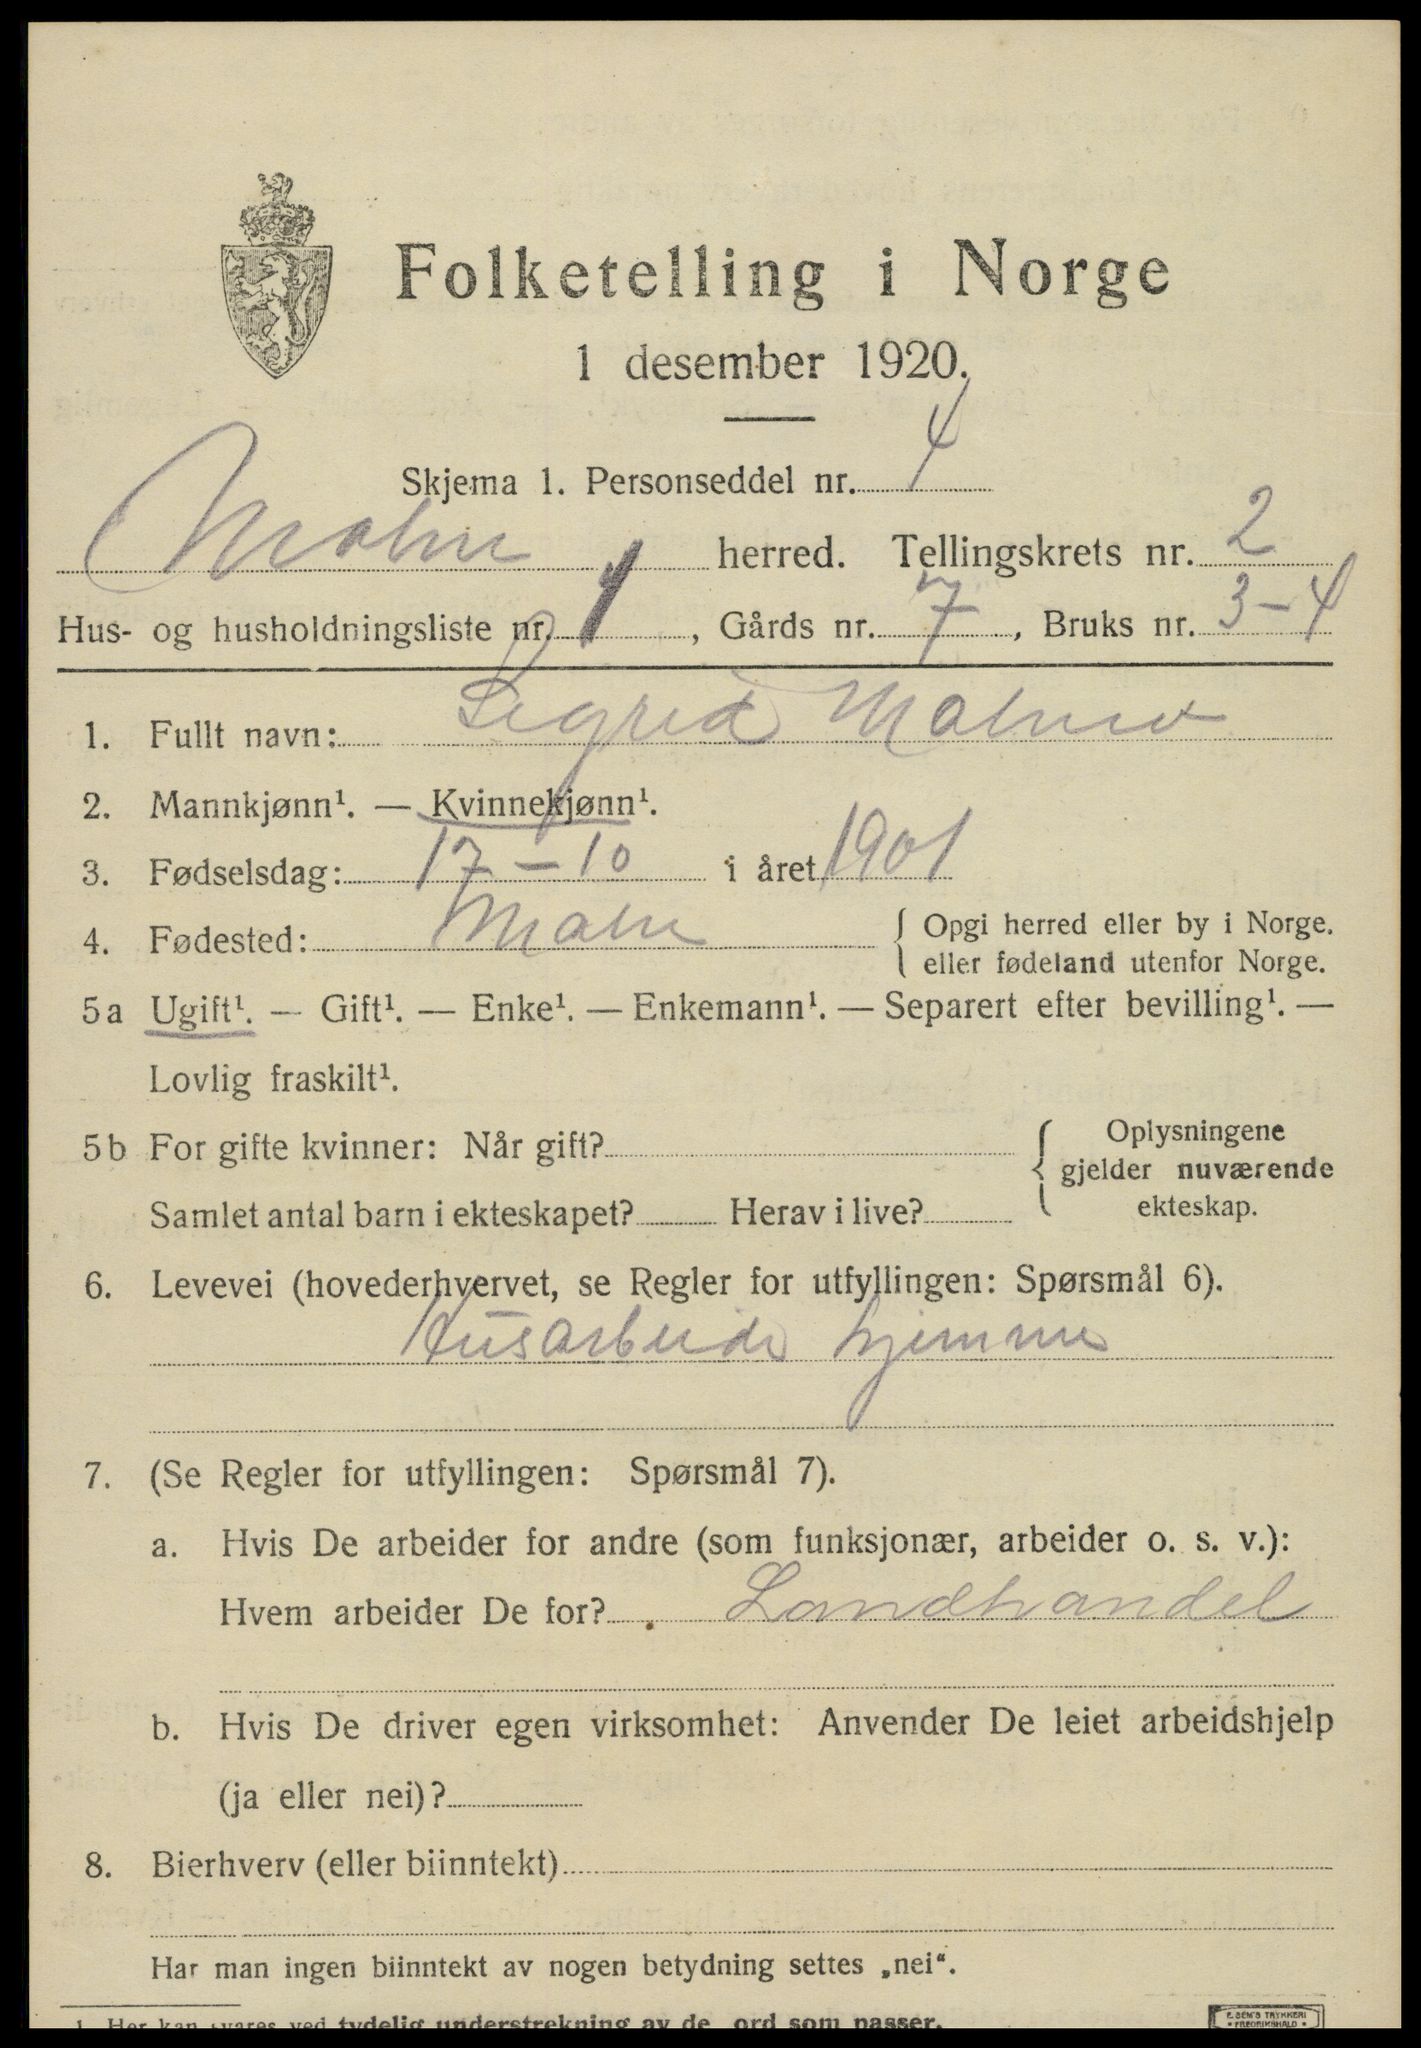 Folketelling i Norge
1 desember 1920.
Skjema 1. Personseddel nr. 4
Malm herred. Tellingskrets nr. 2
Hus- og husholdningsliste nr. , Gårds nr. 7, Bruks nr. 3-4
1. Fullt navn: Sigrid Malmo
2. Mannkjønn¹. — Kvinnekjønn¹.
3. Fødselsdag: 17-10 i året 1901
4. Fødested: Malm { Opgi herred eller by i Norge.
eller fødeland utenfor Norge.
5a Ugift¹. — Gift¹. — Enke¹. — Enkemann¹. — Separert efter bevilling¹. —
Lovlig fraskilt¹.
5b For gifte kvinner: Når gift? { Oplysningene
gjelder nuværende
Samlet antal barn i ekteskapet? Herav i live? ekteskap.
6. Levevei (hovederhvervet, se Regler for utfyllingen: Spørsmål 6).
Husarbeide hjemme
7. (Se Regler for utfyllingen: Spørsmål 7).
a. Hvis De arbeider for andre (som funksjonær, arbeider o. s. v.):
Hvem arbeider De for? Landhandel
b. Hvis De driver egen virksomhet: Anvender De leiet arbeidshjelp
(ja eller nei)?
8. Bierhverv (eller biinntekt)
Har man ingen biinntekt av nogen betydning settes „nei“.
1. Her kan svares ved tydelig understrekning av de ord som passer.
E. SEM'S TRYKKERI
• FREDRIKSHALD •